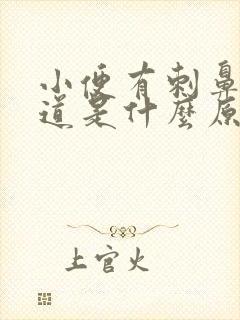 小便有刺鼻
道是什麼原
上官火